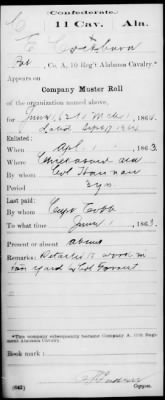 Confederate.
11 Cav. Ala.
Pvt, Co. A, 10 Reg't Alabama Cavalry.*
Appears on
Company Muster Roll
of the organization named above,
for June 186
dated Sept 1864
Enlisted:
When Apl 1, 1863
Where Ala
By whom Harman
Period 3 yrs
Last paid:
By whom Capt Cobb
To what time June 1, 1863
Present or absent absent
Remarks: Detailed to work in
tan yard
*This company subsequently became Company A, 11th Regiment
Alabama Cavalry.
Book mark:
(642) Copyist.